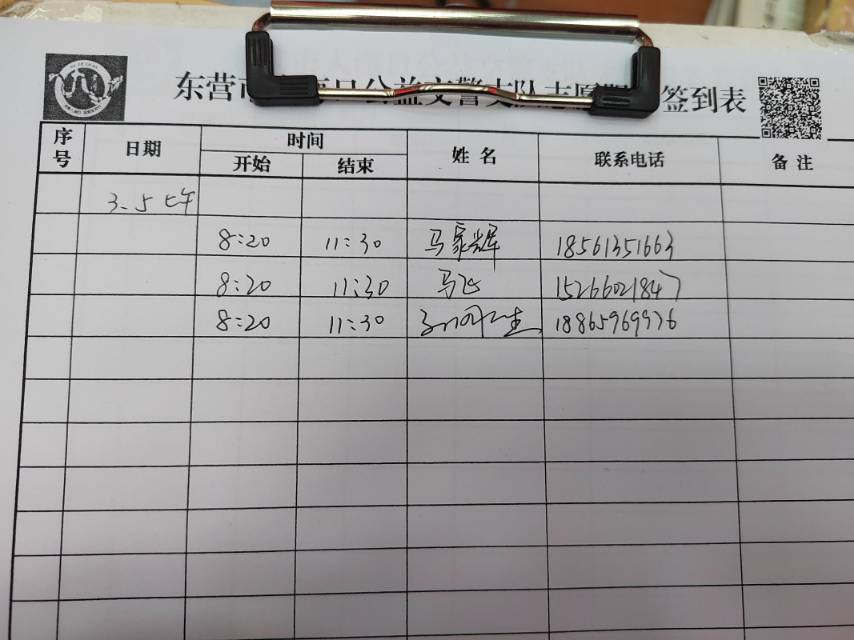 东营市 公益交警支队志愿 签到表
序号 日期 时间 姓名 联系电话 备注
开始 结束
3.5上午
8:20 11:30 马家辉 18561351663
8:20 11:30 马飞 15266021847
8:20 11:30 18865969976